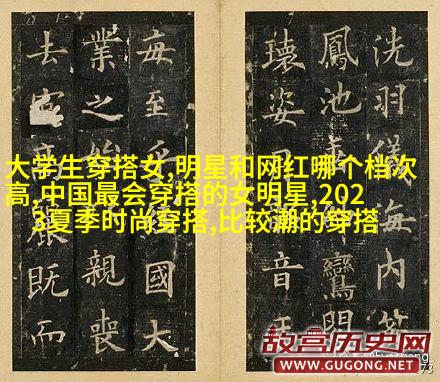 洗羽儀海内
鳳池鸞閣
瓌姿音
毎至國大
業之親喪
去既而
大学生穿搭女,明星和网红哪个档次
高,中国最会穿搭的女明星,202
3夏季时尚穿搭,比较潮的穿搭
故宫历史网
WWW.GUGONG.NET
73